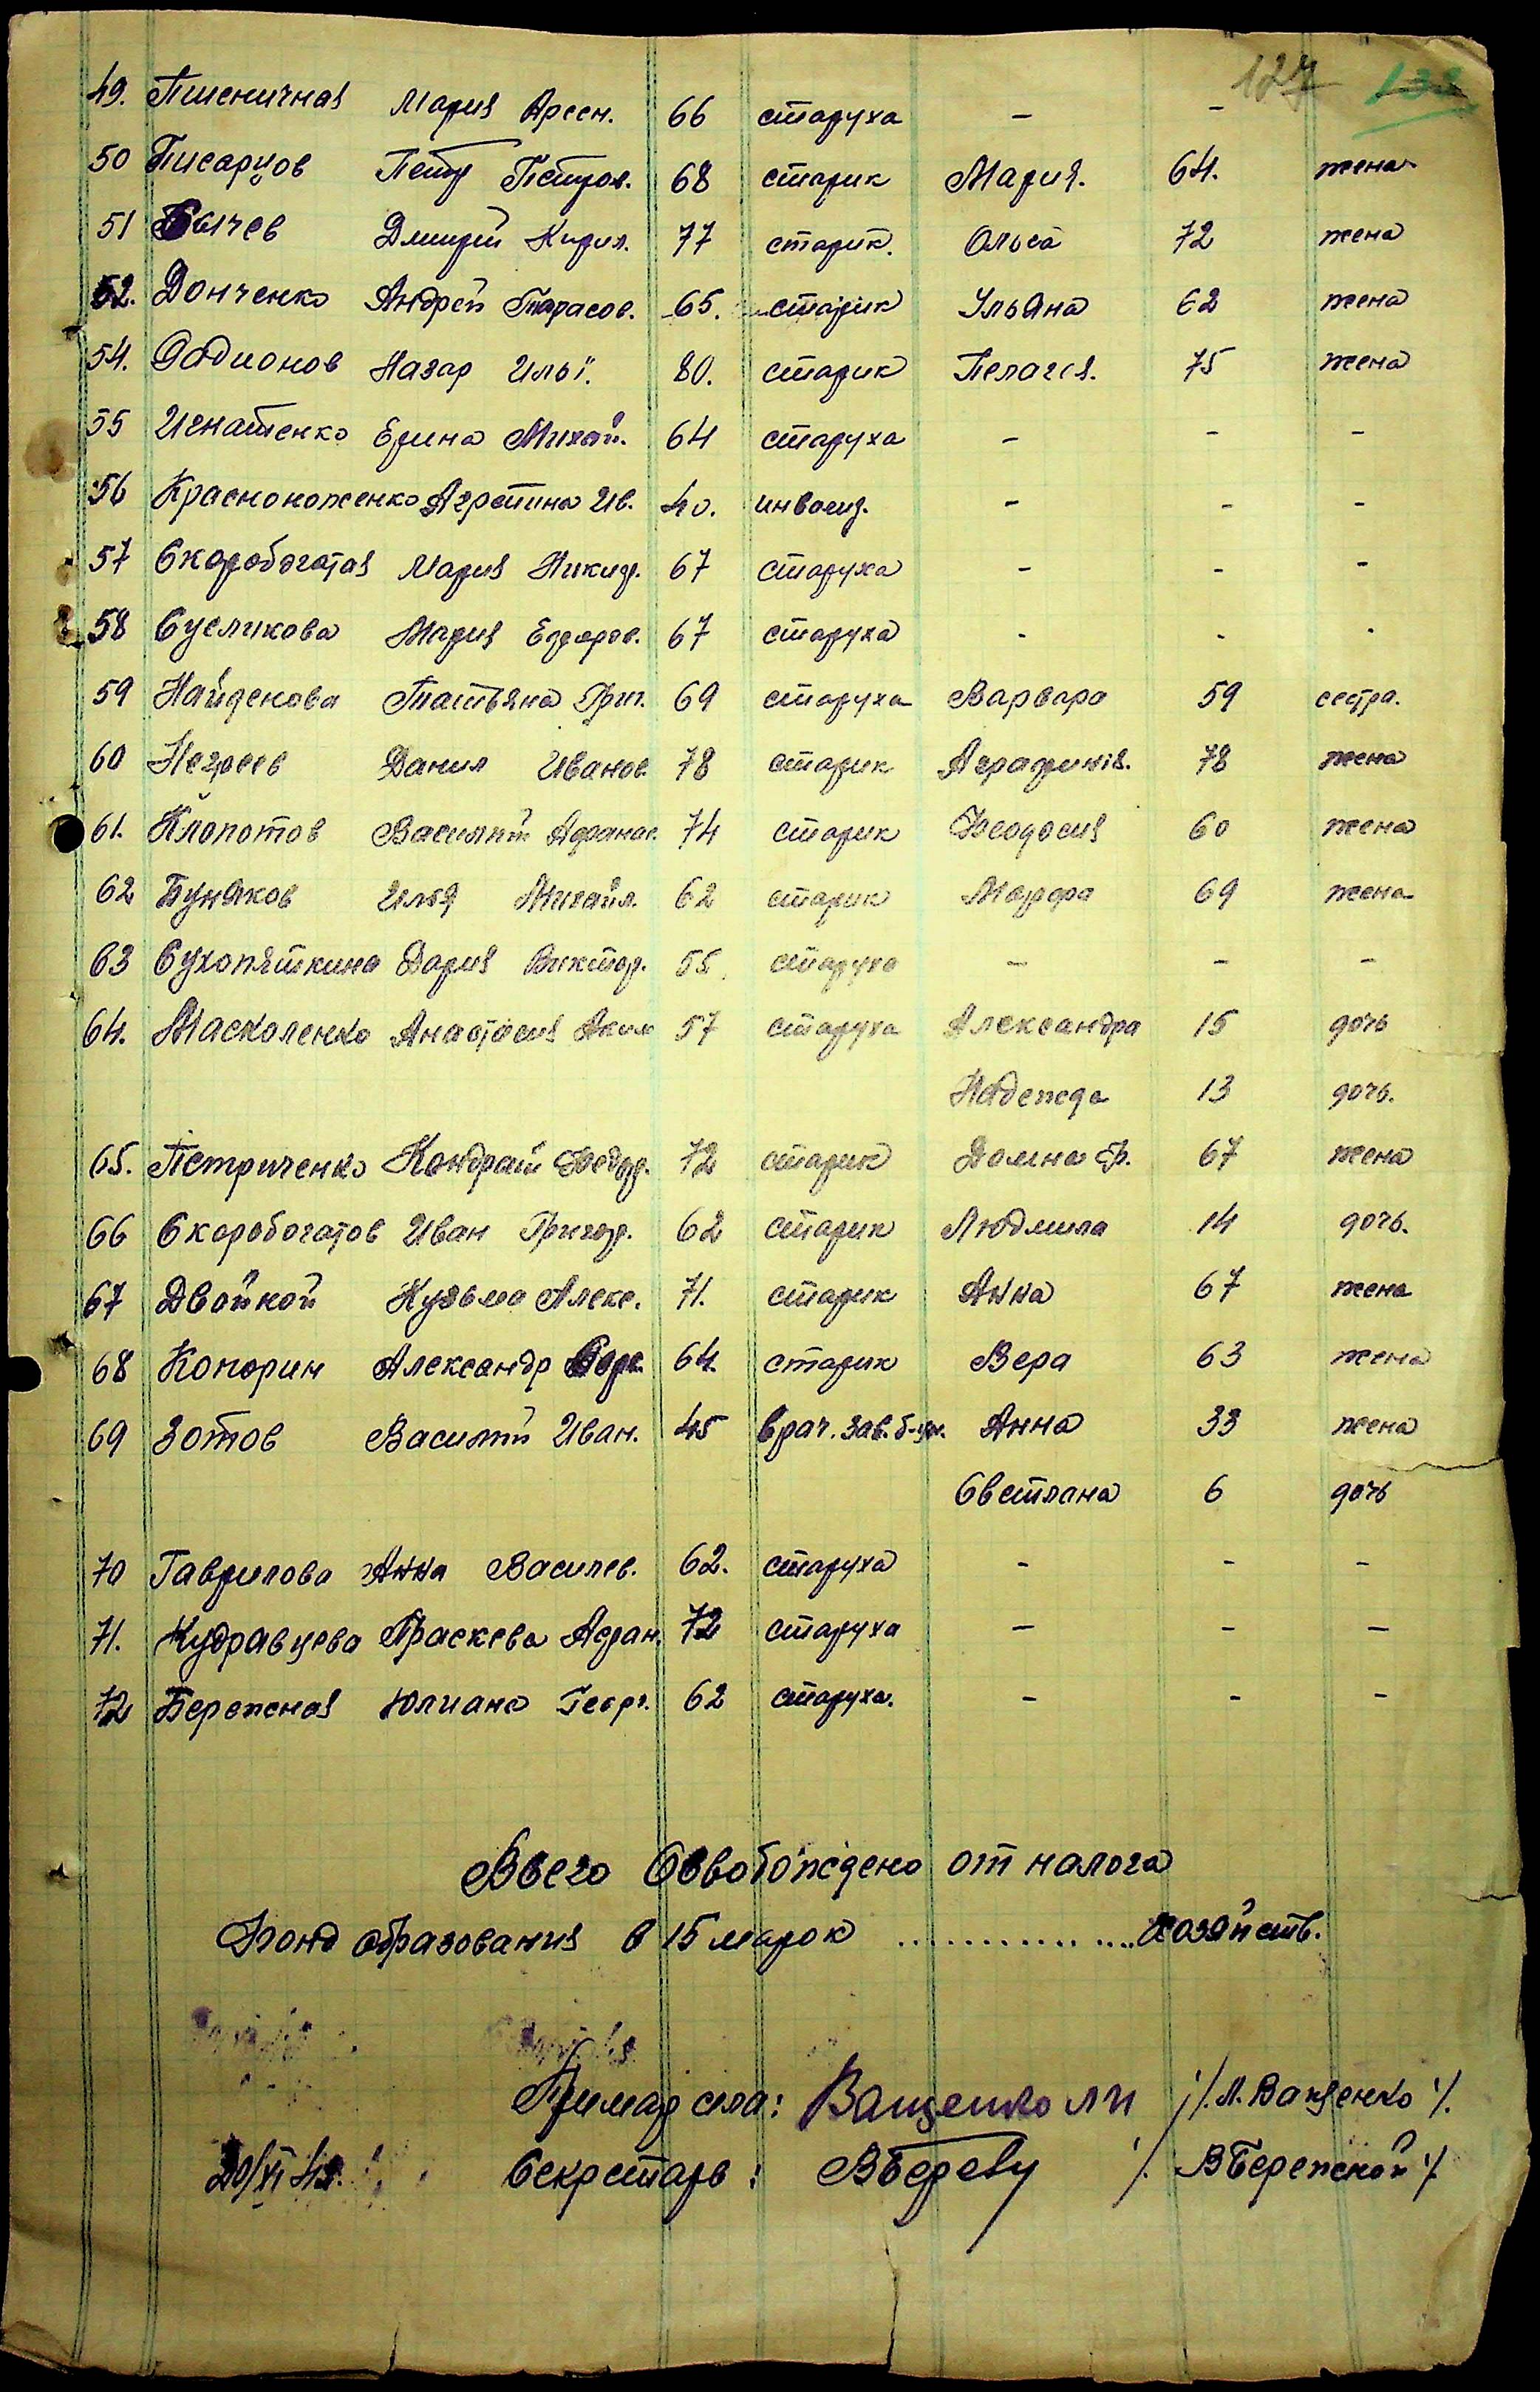 127 132
49. Пшеничная Мария Арсен. 66 старуха - -
50 Писарцов Петр Петров. 68 старик Мария. 64. жена
51 Бычев Дмитрий Кирил. 77 старик. Ольга 72 жена
52. Донченко Андрей Тарасов. 65. старик Ульяна 62 жена
54. Радионов Назар Ильї. 80. старик Пелагея. 75 жена
55 Игнатенко Ерина Михай. 64 старуха - - -
56 Красноноженко Агрепина Ив. 40. инвалид. - - -
57 Скоробогатая Мария Никиф. 67 старуха - - -
58 Сусликова Мария Егоров. 67 старуха - - -
59 Найденова Татьяна Григ. 69 старуха Варвара 59 сестра.
60 Негреев Данил Иванов. 78 старик Аграфинія. 78 жена
61. Клопотов Василий Афанас. 74 старик Феодосия 60 жена
62 Буняков Илья Михайл. 62 старик Марфа 69 жена
63 Сухопяткина Дария Виктор. 55. старуха - - -
64. Масколенко Анастасия Аким 57 старуха Александра 15 дочь
Надежда 13 дочь.
65. Петриченко Кондрат Федор. 72 старик Домна Ф. 67 жена
66 Скоробогатов Иван Григор. 62 старик Людмила 14 дочь.
67 Двойной Кузьма Алекс. 71. старик Анна 67 жена
68 Копорин Александр 64. старик Вера 63 жена
69 Зотов Василий Иван. 45 врач. зав. б-цы. Анна 33 жена
Светлана 6 дочь
70 Гаврилова Анна Василев. 62. старуха - - -
71. Кудравцева Праскева Афан. 72 старуха - - -
72 Бережная Юлиана Георг. 62 старуха. - - -
Всего Освобождено от налога
Фонд образования в 15 марок ................ хозяйств.
Примар села: Ващенко ЛИ /. Л. Ващенко /.
20/XI 42. Секретарь: ВБереву /. В Бережной /.